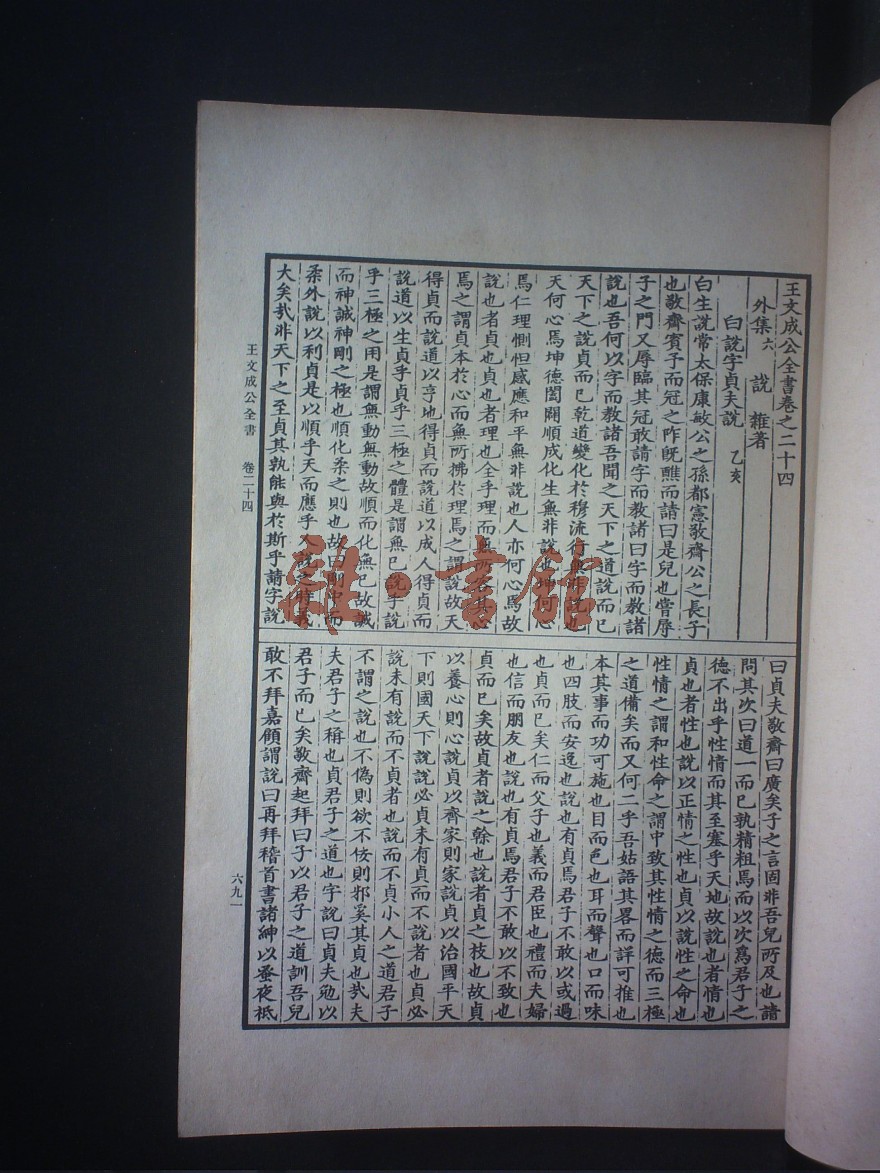 王文成公全書卷之二十四
外集六 說 雜著
白說字貞夫說 乙亥
白生說常太保康敏公之孫都憲敬齋公之長子
也敬齋賓予而冠之阼旣醮而請曰是兒也嘗辱
子之門又辱臨其冠敢請字而敎諸曰字而敎諸
說也吾何以字而敎諸吾聞之天下之道說而已
天下之說貞而已乾道變化於穆流行無非說也
天何心焉坤德闔闢順成化生無非說也坤何心
焉仁理惻怛感應和平無非說也人亦何心焉故
說也者貞也貞也者理也全乎理而無所容其心
焉之謂貞本於心而無所拂於理焉之謂說故天
得貞而說道以亨地得貞而說道以成人得貞而
說道以生貞乎貞乎三極之體是謂無已說乎說
乎三極之用是謂無動無動故順而化無已故誠
而神誠神剛之極也順化柔之則也故曰剛中而
柔外說以利貞是以順乎天而應乎人說之時義
大矣哉非天下之至貞其孰能與於斯乎請字說
曰貞夫敬齋曰廣矣子之言固非吾兒所及也請
問其次曰道一而已孰精粗焉而以次爲君子之
德不出乎性情而其至塞乎天地故說也者情也
貞也者性也說以正情之性也貞以說性之命也
性情之謂和性命之謂中致其性情之德而三極
之道備矣而又何二乎吾姑語其畧而詳可推也
本其事而功可施也目而色也耳而聲也口而味
也四肢而安逸也說也有貞焉君子不敢以或過
也貞而已矣仁而父子也義而君臣也禮而夫婦
也信而朋友也說也有貞焉君子不敢以不致也
貞而已矣故貞者說之榦也說者貞之枝也故貞
以養心則心說貞以齊家則家說貞以治國平天
下則國天下說說必貞未有貞而不說者也貞必
說未有說而不貞者也說而不貞小人之道君子
不謂之說也不偽則欲不佞則邪奚其貞也哉夫
夫君子之稱也貞君子之道也字說曰貞夫勉以
君子而已矣敬齋起拜曰子以君子之道訓吾兒
敢不拜嘉顧謂說曰再拜稽首書諸紳以蚤夜祗
王文成公全書 卷二十四
六九一
雜·書館